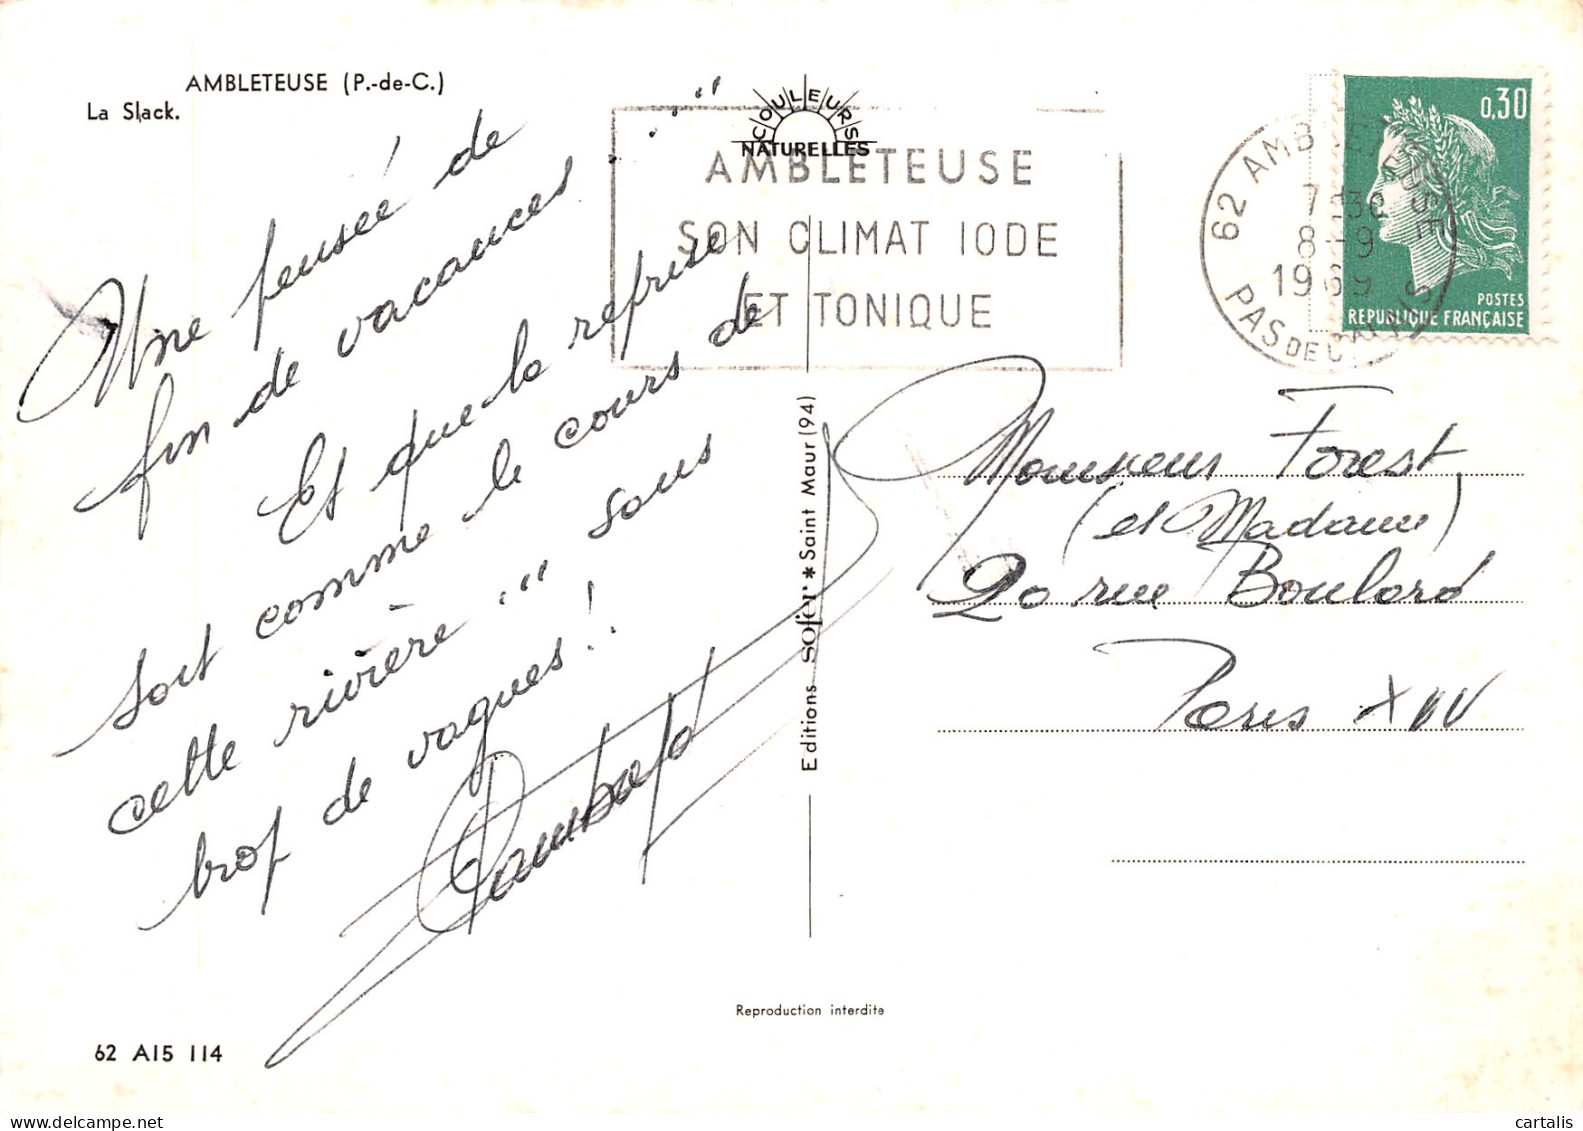 AMBLETEUSE (P.-de-C.)
La Slack.
Une pensée de
fin de vacances ..."
Et que la reprise
soit comme le cours de
cette rivière ..." sans
trop de vagues !
COULEURS
NATURELLES
AMBLETEUSE
SON CLIMAT IODE
ET TONIQUE
62 AMBLETEUSE
8-9
1969
PAS DE CALAIS
0,30
POSTES
REPUBLIQUE FRANÇAISE
Monsieur Forest
(et Madame)
20 rue Boulard
Paris XIV
Editions sofer * Saint Maur (94)
Reproduction interdite
62 A15 114
cartalis